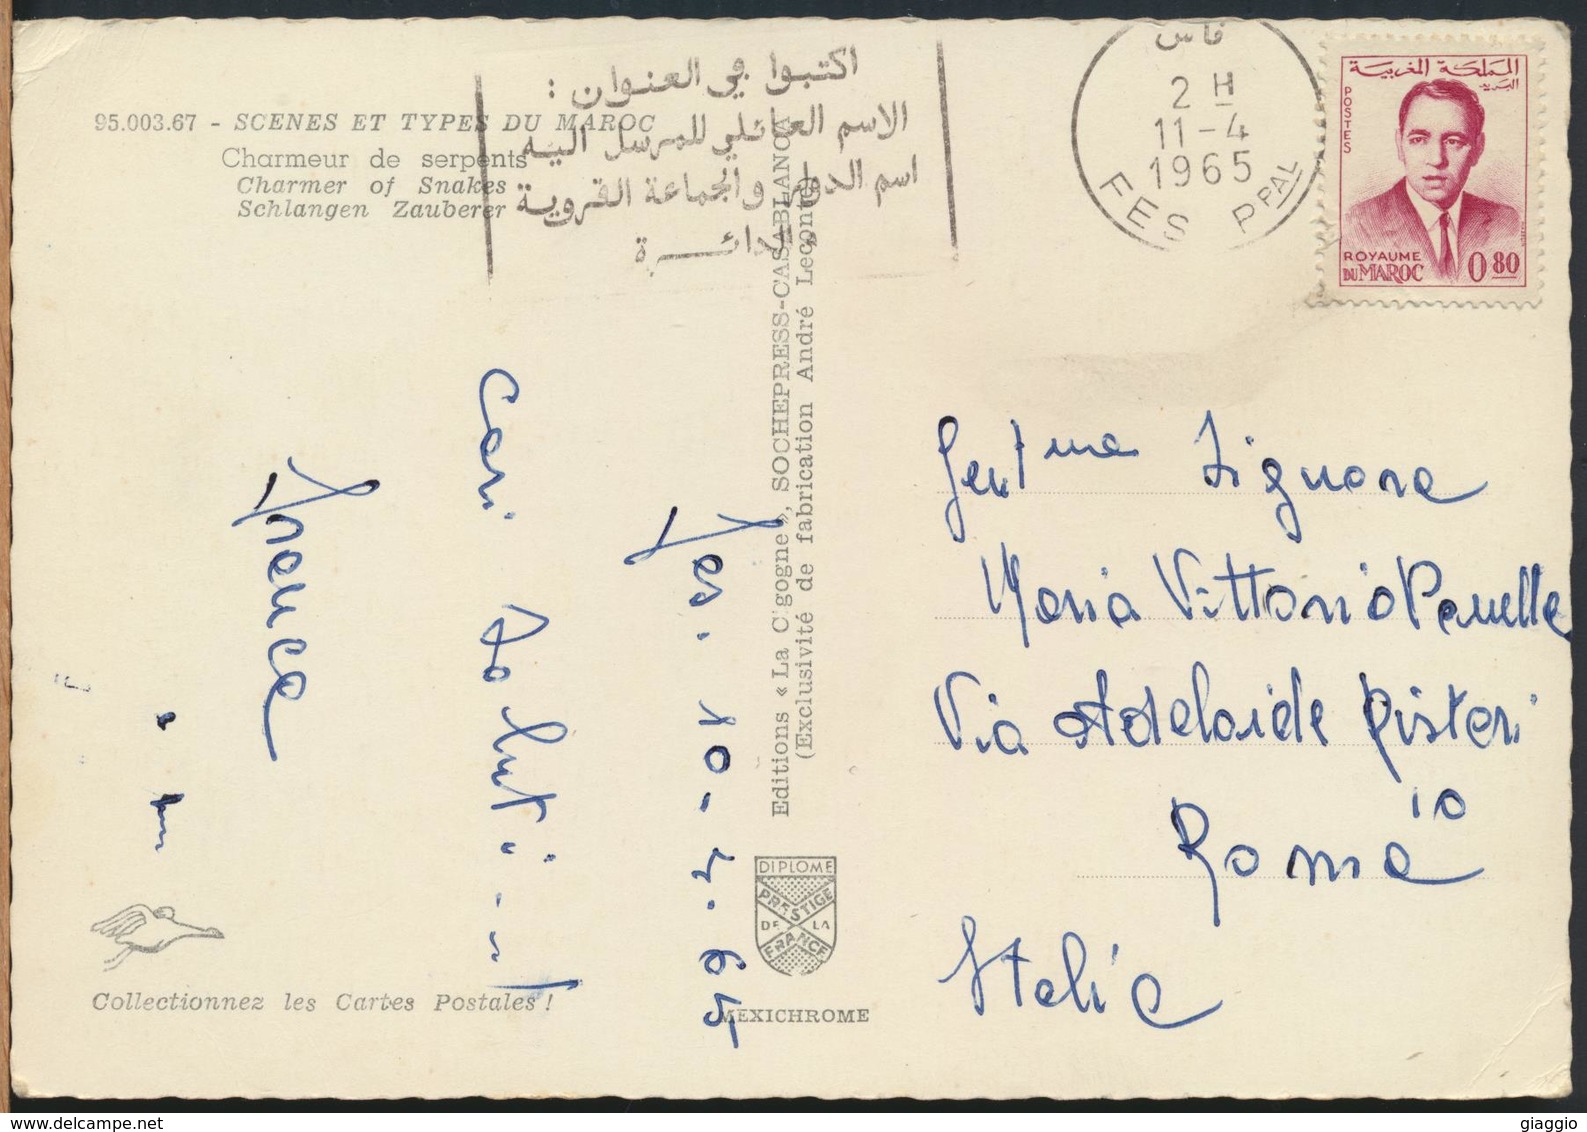 95.003.67 - SCENES ET TYPES DU MAROC
Charmeur de serpents
Charmer of Snakes
Schlangen Zauberer
اكتبوا في العنوان :
الاسم العائلي للمرسل اليه
اسم الدوار والجماعة القروية
والدائرة
فاس
2 H
11-4
1965
FES PPAL
المملكة المغربية
البريد
POSTES
ROYAUME
DU MAROC
0 80
Editions « La Cigogne », SOCHEPRESS-CASABLANCA
(Exclusivité de fabrication André Leconte)
Fes. 10-4-65
Cari saluti
Franca
Gent ma Signora
Maria Vittoria
Via Adelaide Ristori
10
Roma
Italia
DIPLOME
PRESTIGE
DE LA
FRANCE
MEXICHROME
Collectionnez les Cartes Postales !
giaggio